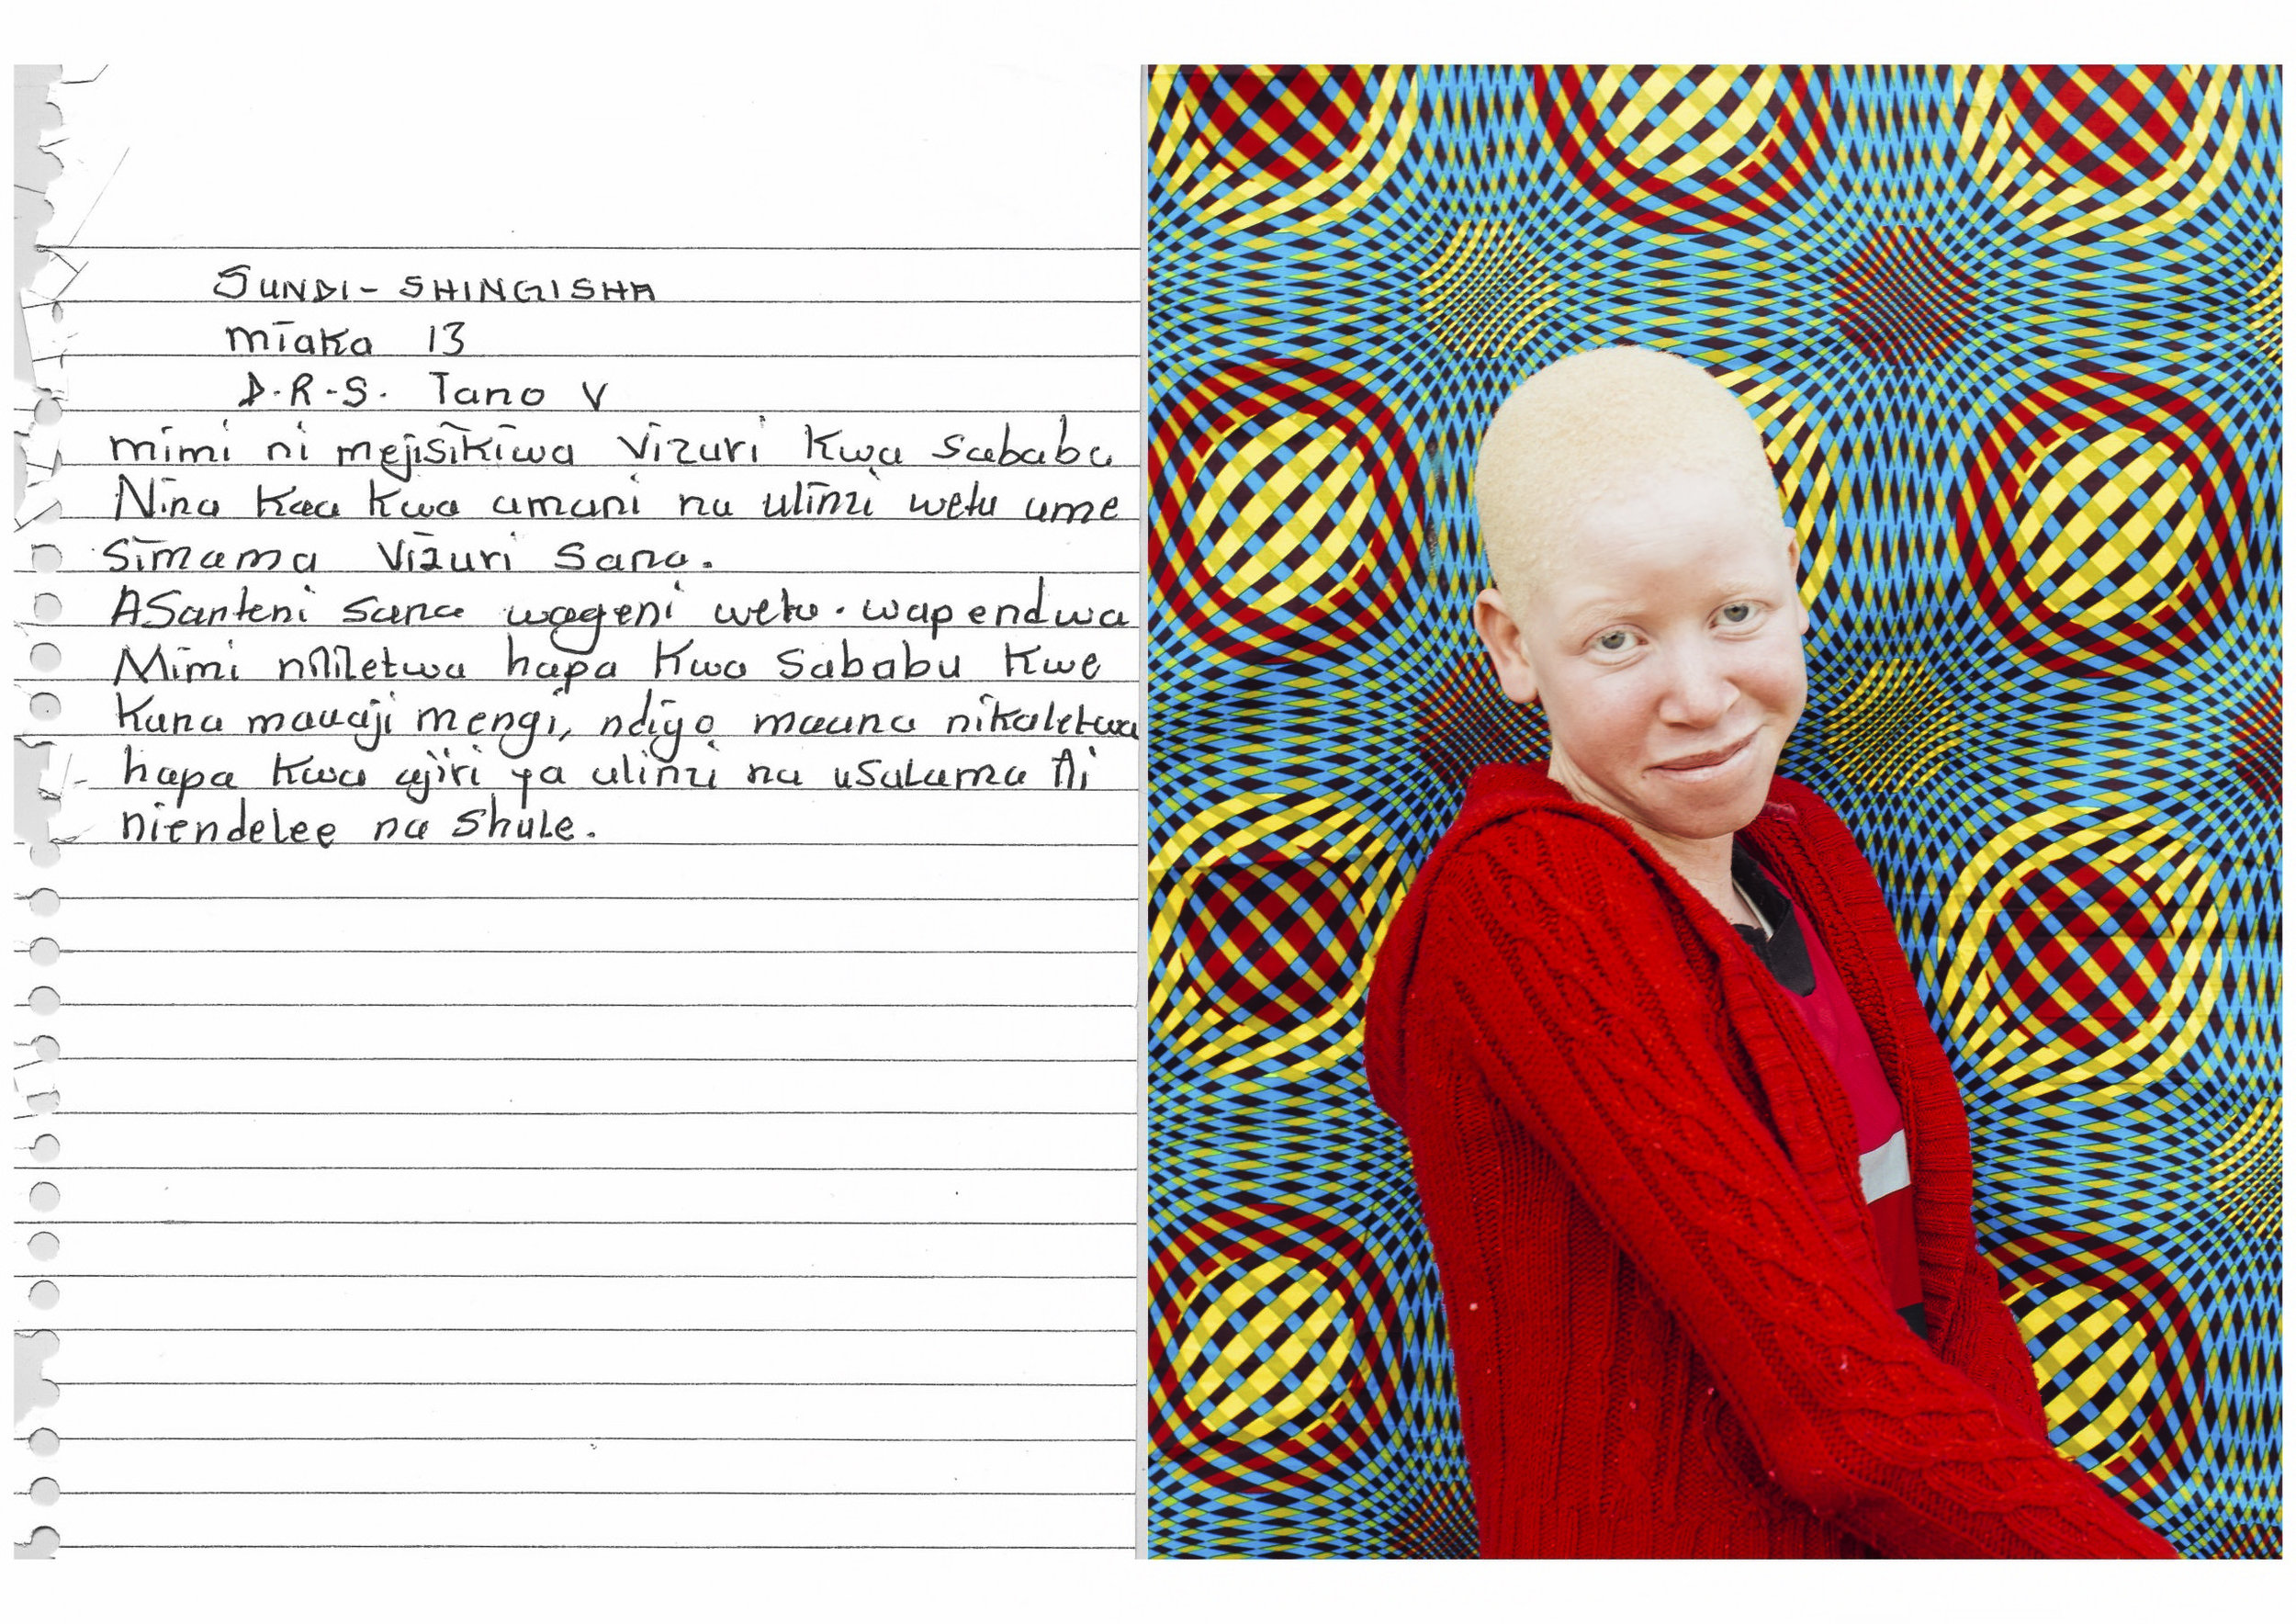 SUNDI - SHINGISHA
miaka 13
D.R.S. Tano V
mimi ni mejisikiwa vizuri kwa sababu
Nina kaa kwa amani na ulinzi wetu ume
simama vizuri sana.
ASanteni sana wageni wetu. wapendwa
Mimi nililetwa hapa kwa sababu kwe
kuna mauaji mengi, ndiyo maana nikaletwa
hapa kwa ajiri ya ulinzi na usalama ili
niendelee na shule.